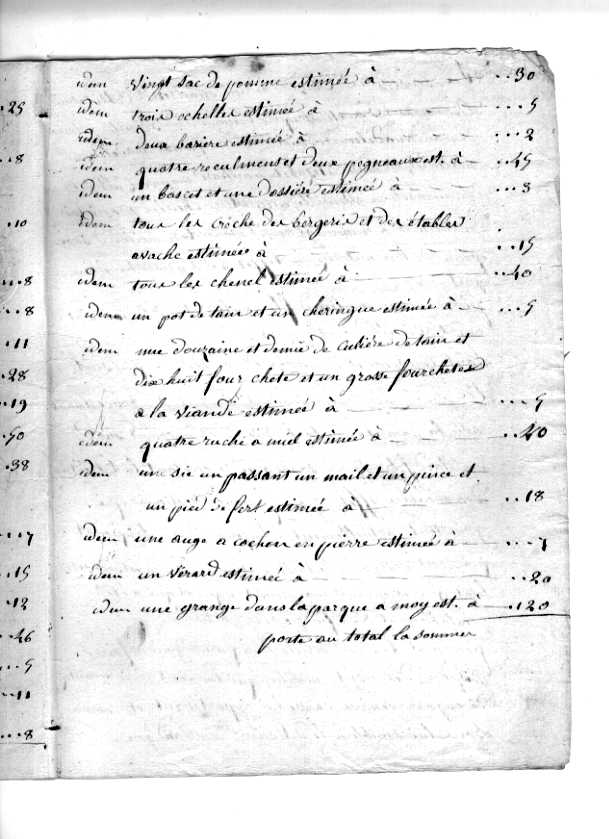 25
8
10
8
8
11
28
19
50
38
7
15
12
46
5
11
8
idem vingt sac de pomme estimée à 30
idem trois echelles estimée à 5
idem deux bariere estimée à 2
idem quatre reculment et deux pegneaux est. à 45
idem un bascet et une dossiére estimée à 3
idem tous les créche des bergerie et des étables
avache estimée à 15
idem tous les chenel estimée à 40
idem un pot de tain et un cheringue estimée à 5
idem une douzaine et demie de culiére de tain et
dix huit four chete et un grasse fourchetes
a la viande estimée à 5
idem quatre ruche a miel estimée à 20
idem une sie un passant un mail et un pince et
un pied de fert estimée à 18
idem une auge a cochon en pierre estimée à
idem un vérard estimée à 20
idem une grange dans la parque a moy est. à 120
porte au total la sommer